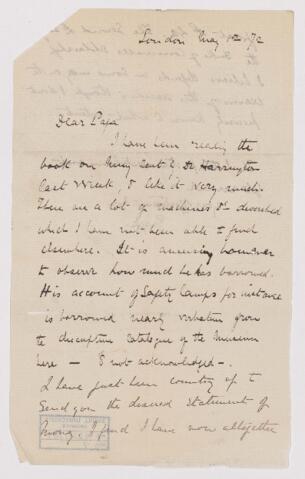 London May 12 /72
Dear Papa
I have been reading the
book on Mining sent to Dr Harrington
last week, & like it very much.
There are a lot of machines &c described
which I have not been able to find
elsewhere. It is amusing however
to observe how much he has borrowed.
His account of Safety Lamps for instance
is borrowed nearly verbatim from
the descriptive Catalogue of the Museum
here — & not acknowledged —.
I have just been
Send you the desired statement of
money. I find I have now altogether